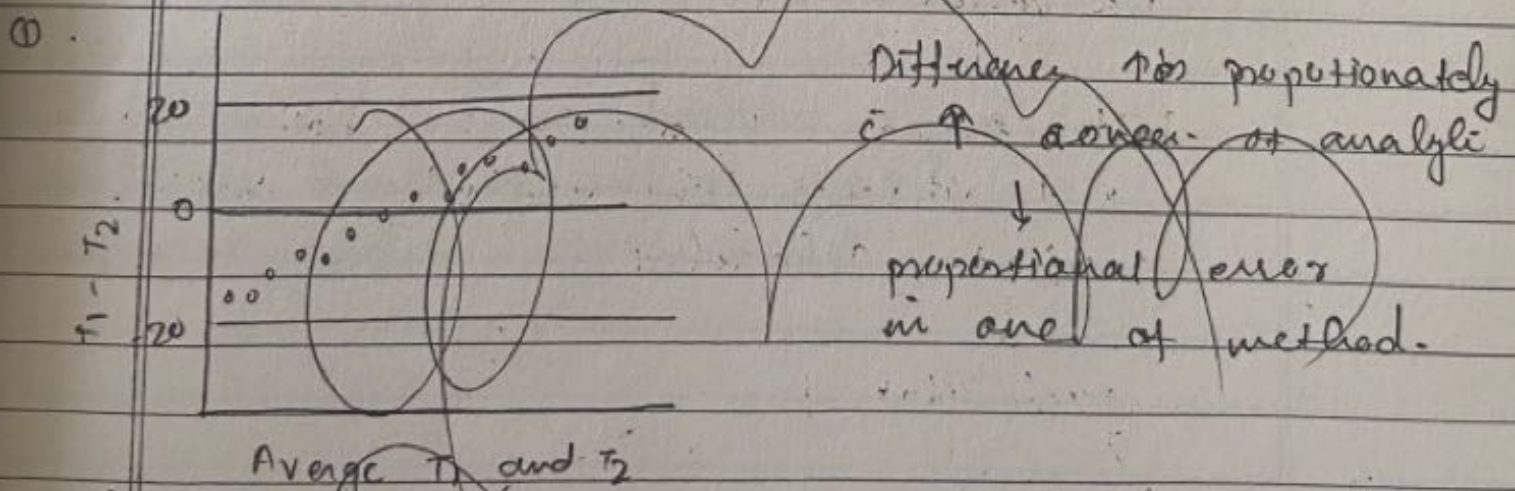 ①.
20
0
-20
T1 - T2
Average T1 and T2
Difference ↑es propotionately
c̄ ↑ concen. of analyte
↓
proportional error
in one of method.